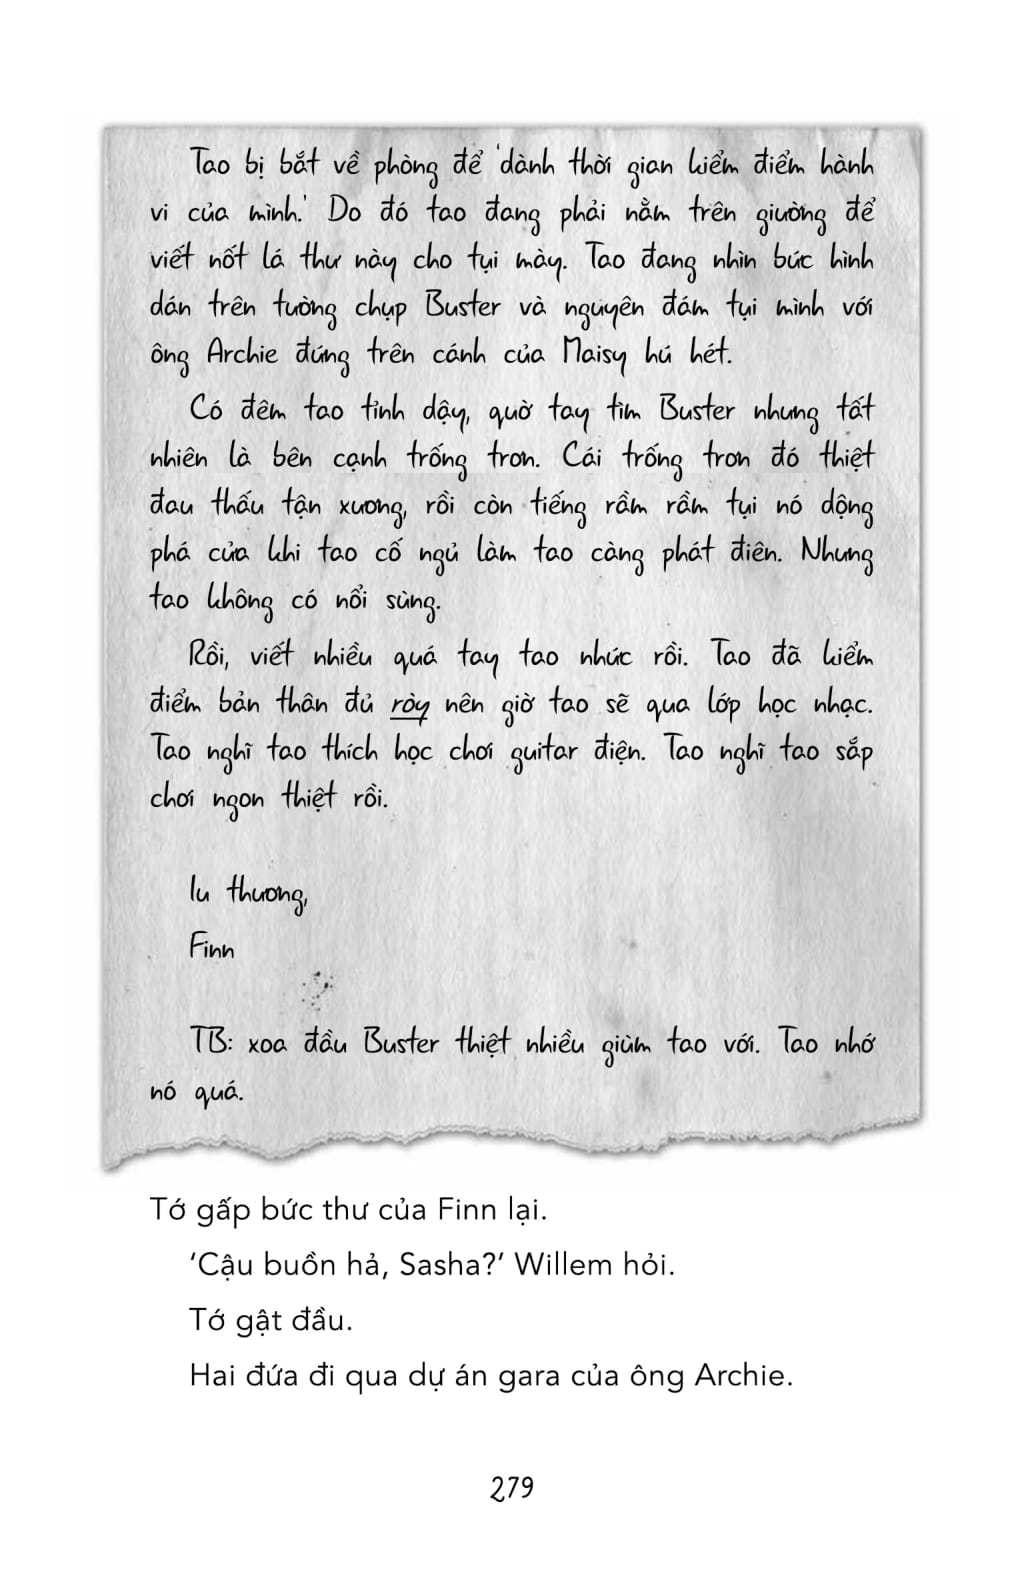 Tao bị bắt về phòng để 'dành thời gian kiểm điểm hành
vi của mình.' Do đó tao đang phải nằm trên giường để
viết nốt lá thư này cho tụi mày. Tao đang nhìn bức hình
dán trên tường chụp Buster và nguyên đám tụi mình với
ông Archie đứng trên cánh của Maisy hú hét.
Có đêm tao tỉnh dậy, quờ tay tìm Buster nhưng tất
nhiên là bên cạnh trống trơn. Cái trống trơn đó thiệt
đau thấu tận xương, rồi còn tiếng rầm rầm tụi nó dộng
phá cửa khi tao cố ngủ làm tao càng phát điên. Nhưng
tao không có nổi sùng.
Rồi, viết nhiều quá tay tao nhức rồi. Tao đã kiểm
điểm bản thân đủ ròy nên giờ tao sẽ qua lớp học nhạc.
Tao nghĩ tao thích học chơi guitar điện. Tao nghĩ tao sắp
chơi ngon thiệt rồi.
Iu thương,
Finn
TB: xoa đầu Buster thiệt nhiều giùm tao với. Tao nhớ
nó quá.
Tớ gấp bức thư của Finn lại.
‘Cậu buồn hả, Sasha?’ Willem hỏi.
Tớ gật đầu.
Hai đứa đi qua dự án gara của ông Archie.
279